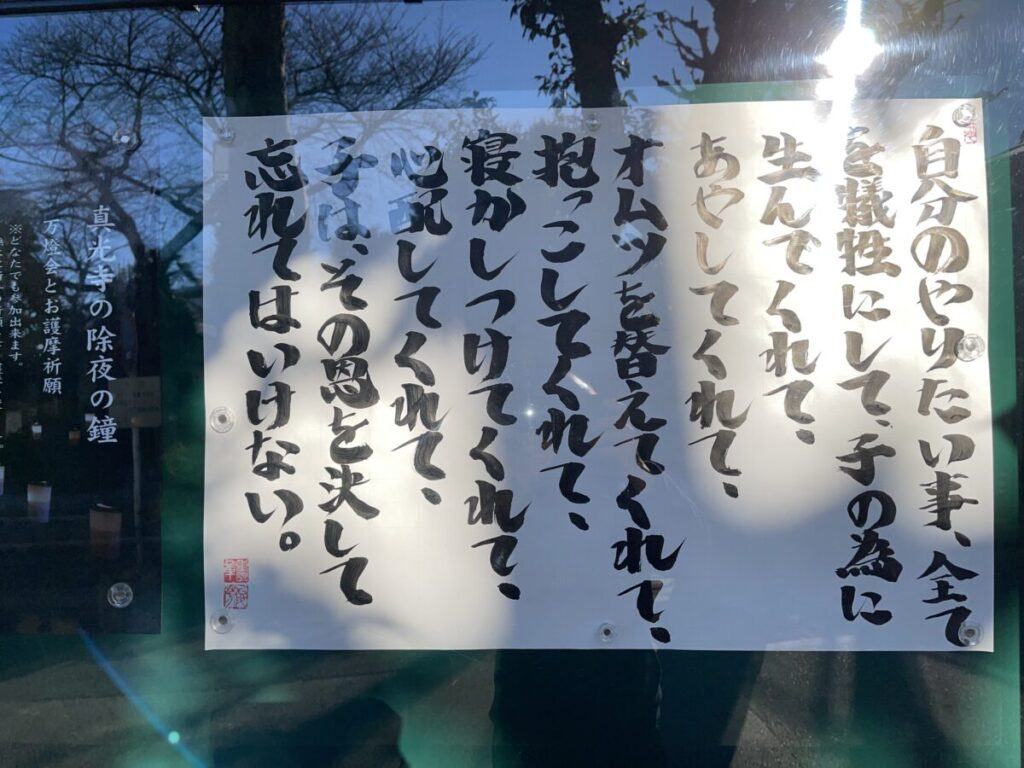 自分のやりたい事、全て
を犠牲にして、子の為に
生んでくれて、
あやしてくれて、
オムツを替えてくれて、
抱っこしてくれて、
寝かしつけてくれて、
心配してくれて、
子は、その恩を決して
忘れてはいけない。
真光寺の除夜の鐘
万燈会とお護摩祈願
※どなたでも参加出来ます。